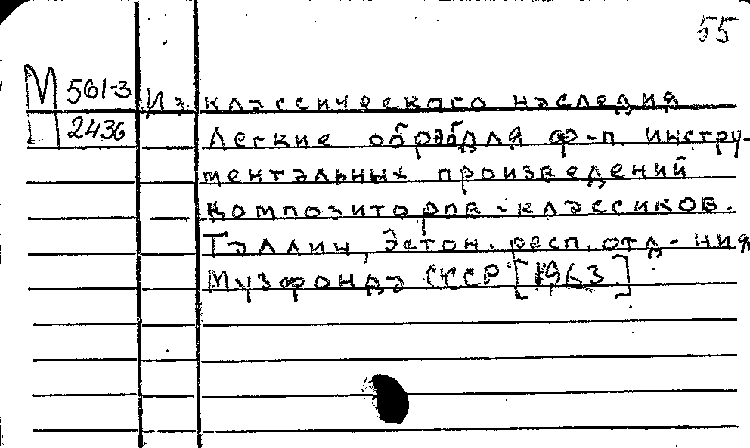 55
М 561-3
2436
Из классического наследия
Легкие обраб для ф-п. инстру-
ментальных произведений
композиторов-классиков.
Таллин, Эстон. респ. отд-ния
Музфонда СССР [1963]